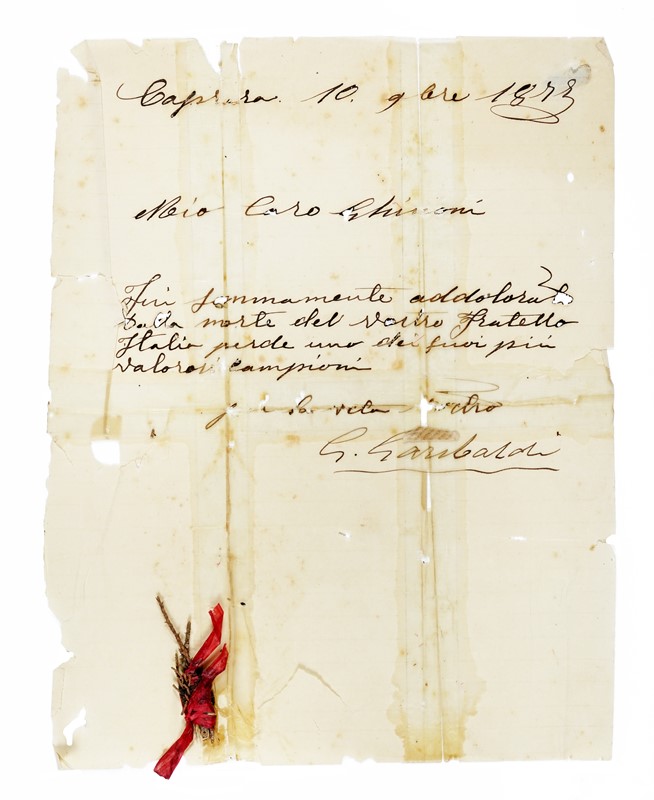 Caprera 10. 9bre 1873
Mio Caro Ghinoni
Fui sommamente addolorato
Dalla morte del vostro fratello
Italia perde uno dei suoi più
valorosi campioni
per la vita vostro
G. Garibaldi